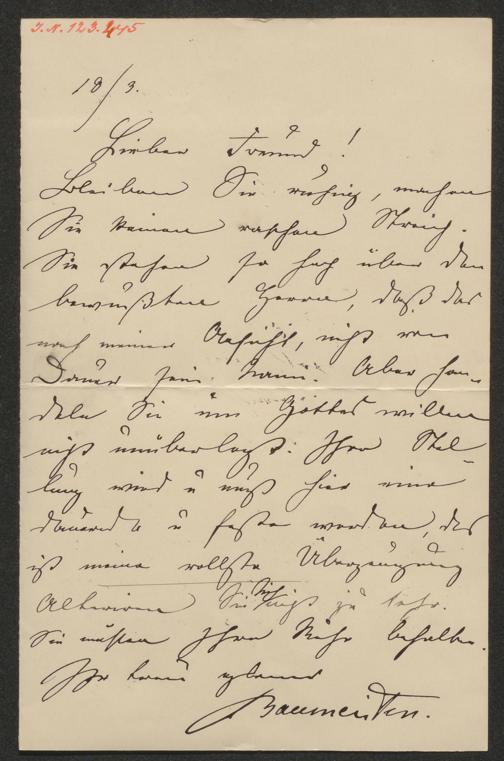 J.N. 123.445
18/3.
Lieber Freund!
Bleiben Sie ruhig, machen
Sie keinen raschen Streich.
Sie stehen so hoch über dem
bewußten Herrn, daß das
nach meinem Gefühl, nicht von
Dauer sein kann. Aber han-
deln Sie um Gottes willen
nicht unüberlegt: Ihre Stel-
lung wird u muß hier eine
dauernde u feste werden, das
ist meine vollste Überzeugung
Alteriren Sie Sich nicht zu sehr.
Sie müssen Ihre Ruhe behalten.
Ihr treu
Baumeister.